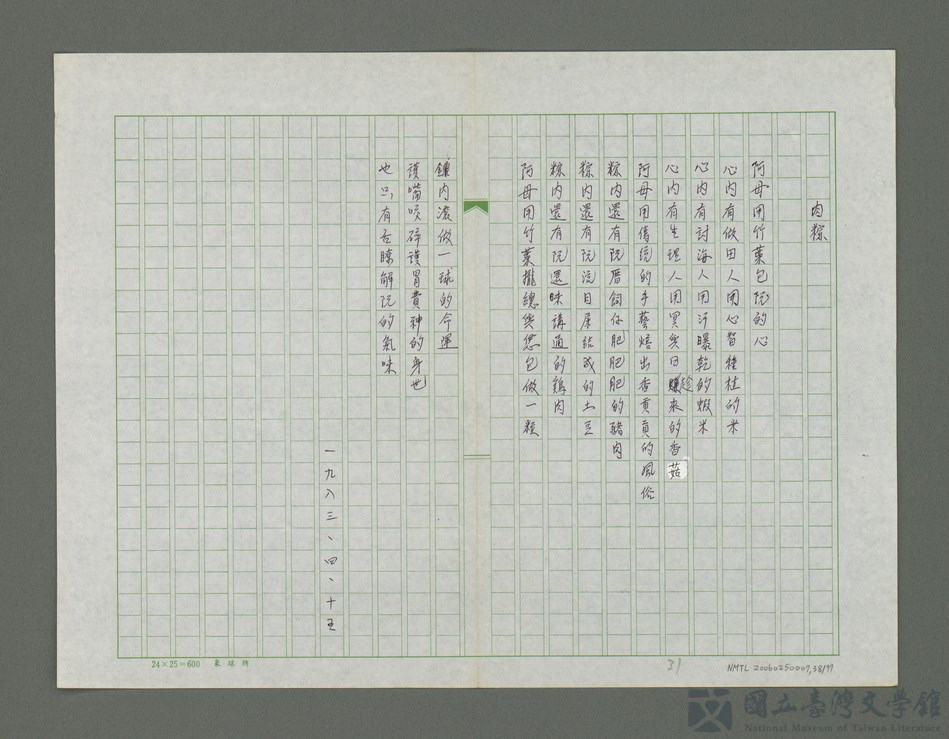 肉粽
阿母用竹葉包阮的心
心內有做田人用心智種植的米
心內有討海人用汗曝乾的蝦米
心內有生理人用冥與日趁來的香菇
阿母用傳統的手藝焙出香貢貢的風俗
粽內還有阮厝飼作肥肥肥的豬肉
粽內還有阮流目屎結成的土豆
粽內還有阮還昧講通的鷄肉
阿母用竹葉攏總與恁包做一粽
鍾內滾做一球的今運
護嘴咬碎護胃費神的身世
也只有舌瞭解阮的氣味
一九八三、四、十五
24×25=600
31
NMTL 20060250007,38/77
國立臺灣文學館
National Museum of Taiwan Literature